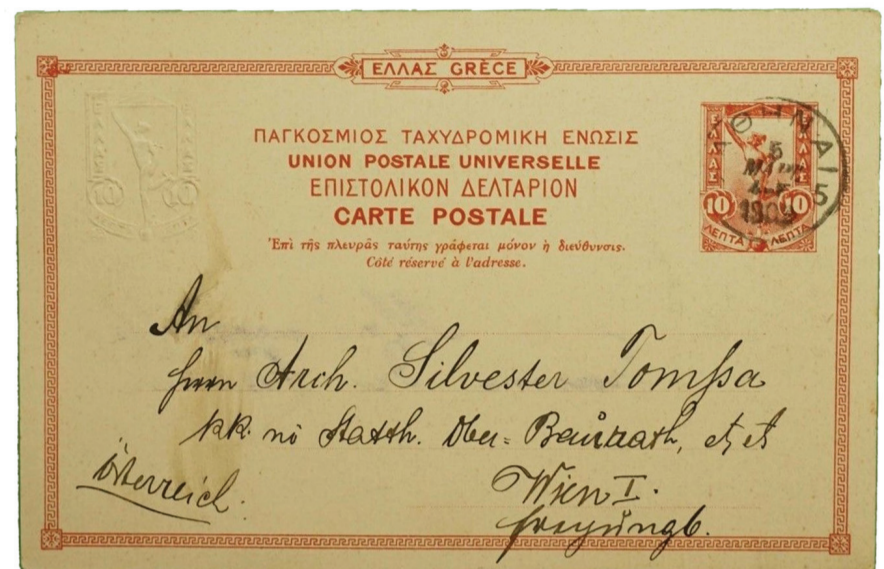 ΕΛΛΑΣ GRÈCE
ΠΑΓΚΟΣΜΙΟΣ ΤΑΧΥΔΡΟΜΙΚΗ ΕΝΩΣΙΣ
UNION POSTALE UNIVERSELLE
ΕΠΙΣΤΟΛΙΚΟΝ ΔΕΛΤΑΡΙΟΝ
CARTE POSTALE
Ἐπὶ τῆς πλευρᾶς ταύτης γράφεται μόνον ἡ διεύθυνσις.
Côté réservé à l'adresse.
ΑΘΗΝΑΙ 5
5
ΕΛΛΑΣ
10 10
ΛΕΠΤΑ ΛΕΠΤΑ
An
Herrn Arch. Silvester Tomssa
kk. nö Statth. Ober=Baurath,
Österreich.
Wien I.
Freyung 6.